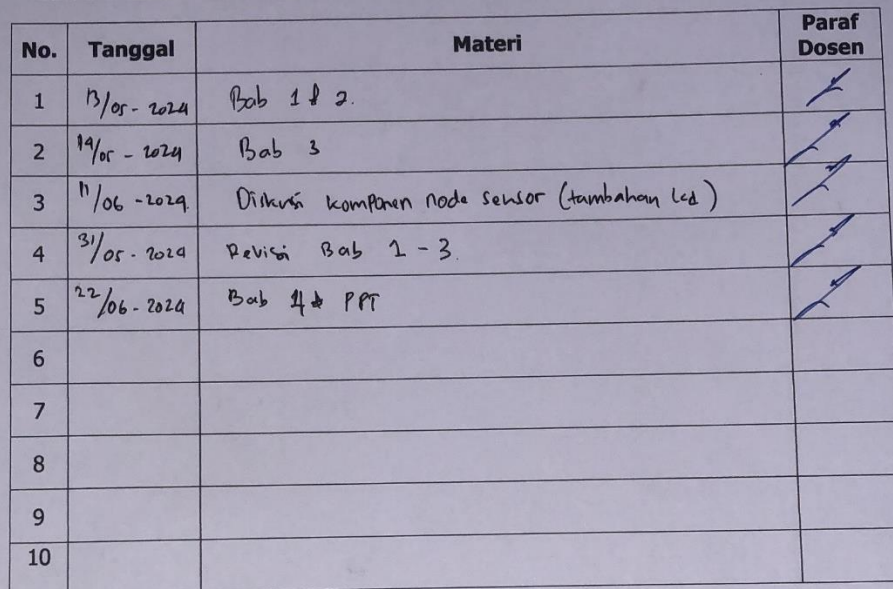 No. Tanggal Materi Paraf Dosen
1 13/05 - 2024 Bab 1 & 2.
2 14/05 - 2024 Bab 3
3 11/06 - 2024. Diskusi komponen node sensor (tambahan lcd)
4 31/05 - 2024 Revisi Bab 1 - 3.
5 22/06 - 2024 Bab 4 & PPT
6
7
8
9
10